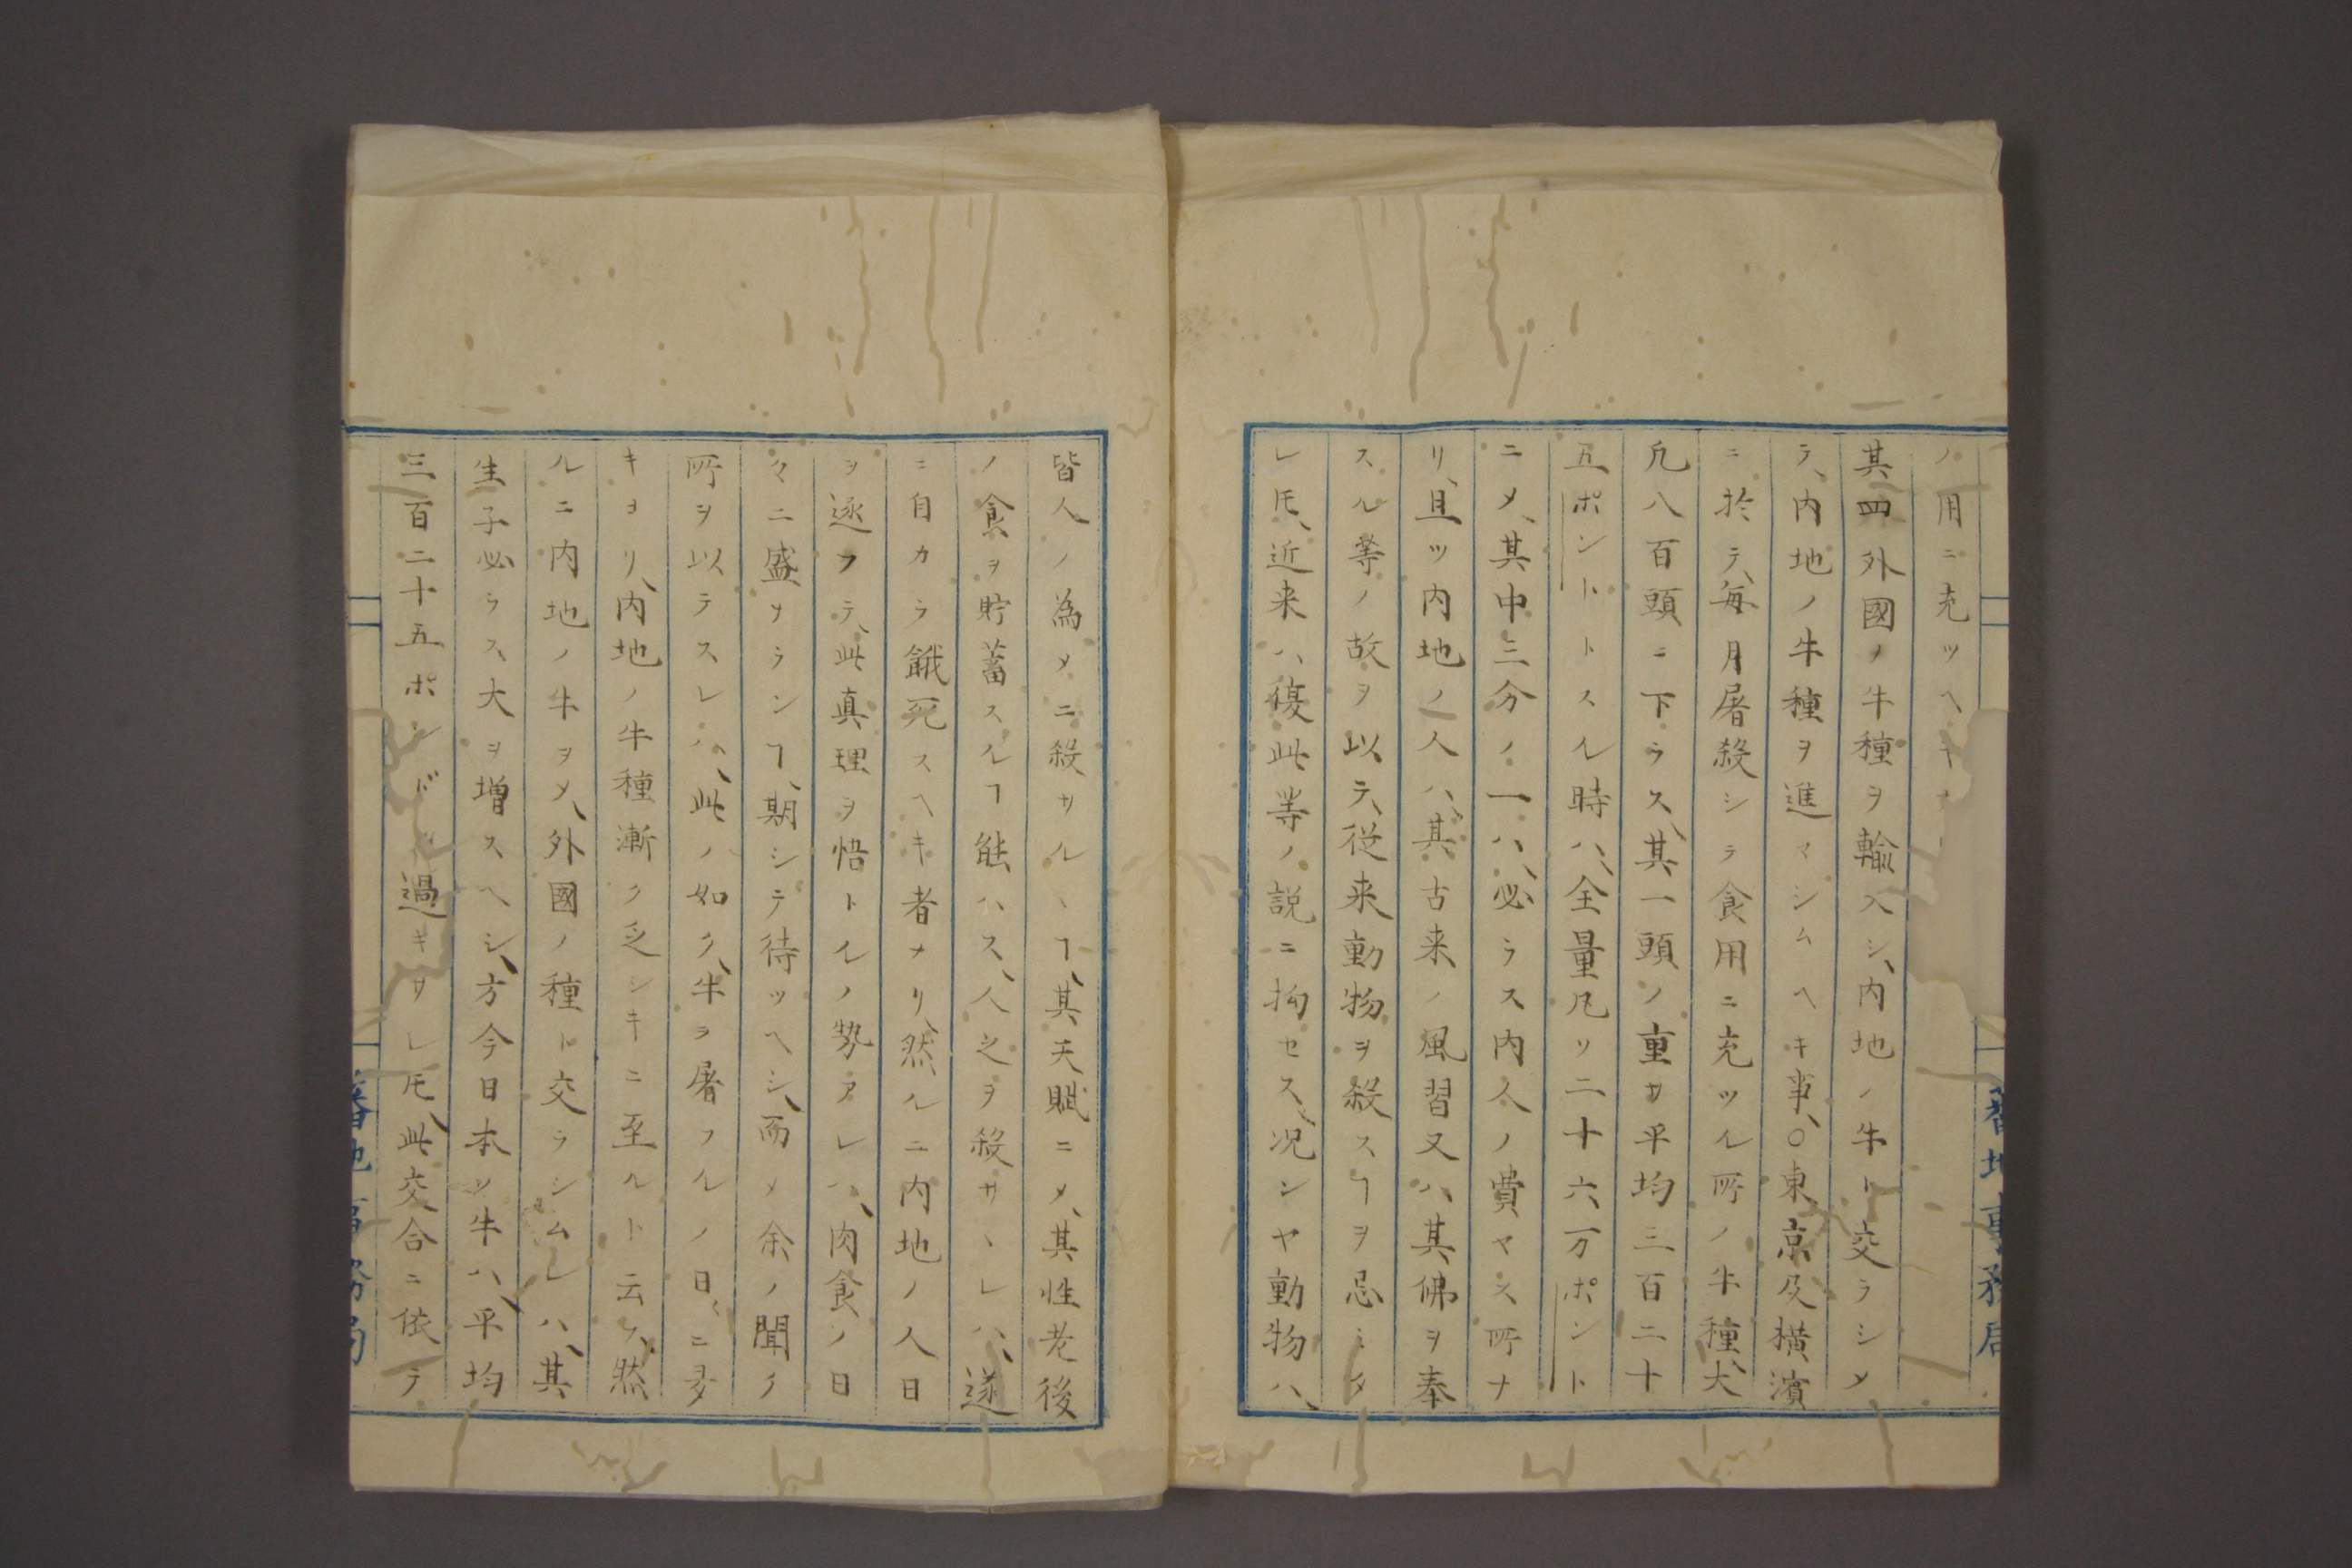 ノ用ニ充ツヘキ
其四外國ノ牛種ヲ輸入シ、内地ノ牛ト交ラシメ
テ、内地ノ牛種ヲ進マシムヘキ事、○東京及橫濱
ニ於テ、毎月屠殺シテ食用ニ充ツル所ノ牛種大
凡八百頭ニ下ラス、其一頭ノ重サ平均三百二十
五ポントトスル時ハ、全量凡ソ二十六万ポント
ニメ、其中三分ノ一ハ、必ラス内人ノ費ヤス所ナ
リ、且ツ内地ノ人ハ、其古来ノ風習又ハ其佛ヲ奉
スル等ノ故ヲ以テ、従来動物ヲ殺スヿヲ忌ミタ
レ𪜈、近来ハ復此等ノ説ニ拘セス、况ンヤ動物ハ、
蕃地事務局
皆人ノ為メニ殺サルヽヿ、其天賦ニメ、其性老後
ノ食ヲ貯蓄スルヿ能ハス、人之ヲ殺サヽレハ、遂
ニ自カラ餓死スヘキ者ナリ、然ルニ内地ノ人日
ヲ逐フテ、此真理ヲ悟トルノ勢アレハ、肉食ノ日
々ニ盛ナランヿ、期シテ待ツヘシ、而メ余ノ聞ク
所ヲ以テスレハ、此ノ如ク、牛ヲ屠フルノ日〻ニ多
キヨリ、内地ノ牛種漸ク乏シキニ至ルト云フ、然
ルニ内地ノ牛ヲメ、外國ノ種ト交ラシムレハ、其
生子必ラス、大ヲ増スヘシ、方今日本ノ牛ハ、平均
三百二十五ポンド過キサレ𪜈、此交合ニ依テ
蕃地事務局